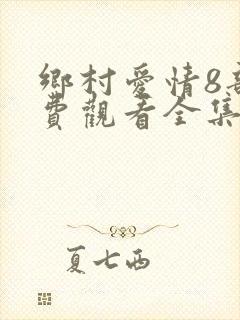 鄉村愛情8部
費觀看全集
夏七西